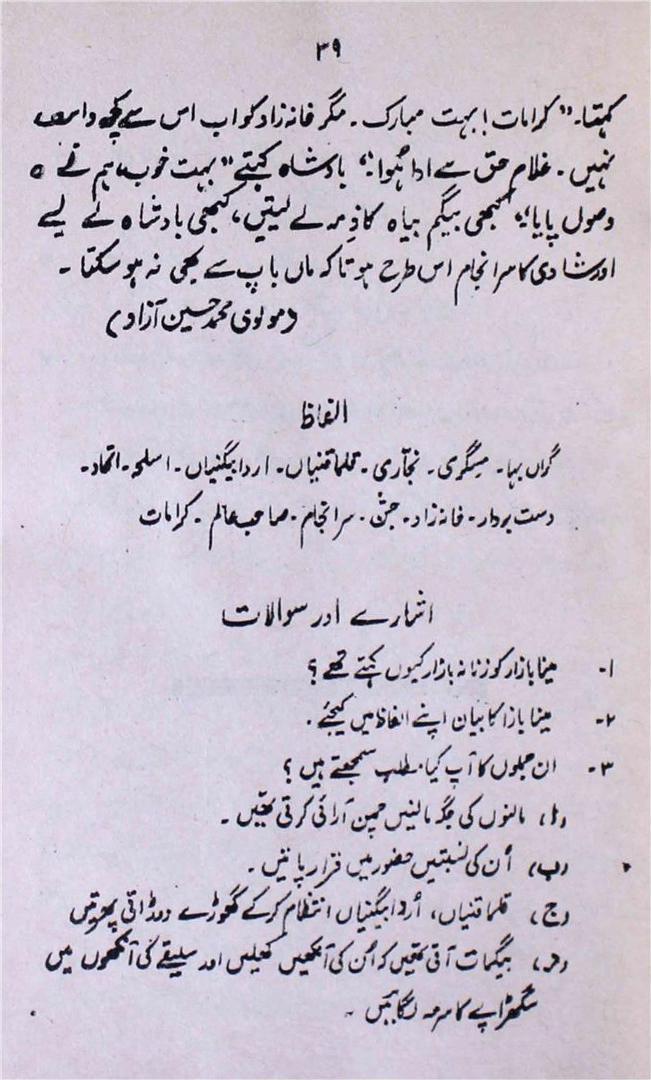 ۳۹
کہتا۔ "کرامات! بہت مبارک۔ مگر خانہ زاد کو اب اس سے کچھ واسطہ
نہیں۔ غلام حق سے ادا ہُوا۔" بادشاہ کہتے "بہت خوب، ہم نے
وصول پایا"، کبھی بیگم بیاہ کا ذمہ لے لیتیں، کبھی بادشاہ لے لیتے
اور شادی کا سرانجام اس طرح ہوتا کہ ماں باپ سے بھی نہ ہو سکتا۔
(مولوی محمد حسین آزاد)
الفاظ
گراں بہا۔ میسگری۔ نجّاری۔ قلماقنیاں۔ اردابیگنیاں۔ اسلحہ۔ اتحاد۔
دست بردار۔ خانہ زاد۔ جشن۔ سرانجام۔ صاحب عالم۔ کرامات
اشارے اور سوالات
۱۔ مینا بازار کو زنانہ بازار کیوں کہتے تھے؟
۲۔ مینا بازا کا بیان اپنے الفاظ میں کیجئے۔
۳۔ ان جملوں کا آپ کیا مطلب سمجھتے ہیں؟
(ا) مالنوں کی جگہ مالنیں چمن آرائی کرتی تھیں۔
(ب) اُن کی نسبتیں حضور میں قرار پاتیں۔
(ج) قلماقنیاں، اُردابیگنیاں انتظام کرکے گھوڑے دوڑاتی پھرتیں
(د) بیگمات آتی تھیں کہ اُن کی آنکھیں کھلیں اور سلیقے کی آنکھوں میں
سگھڑاپے کا سرمہ لگائیں۔